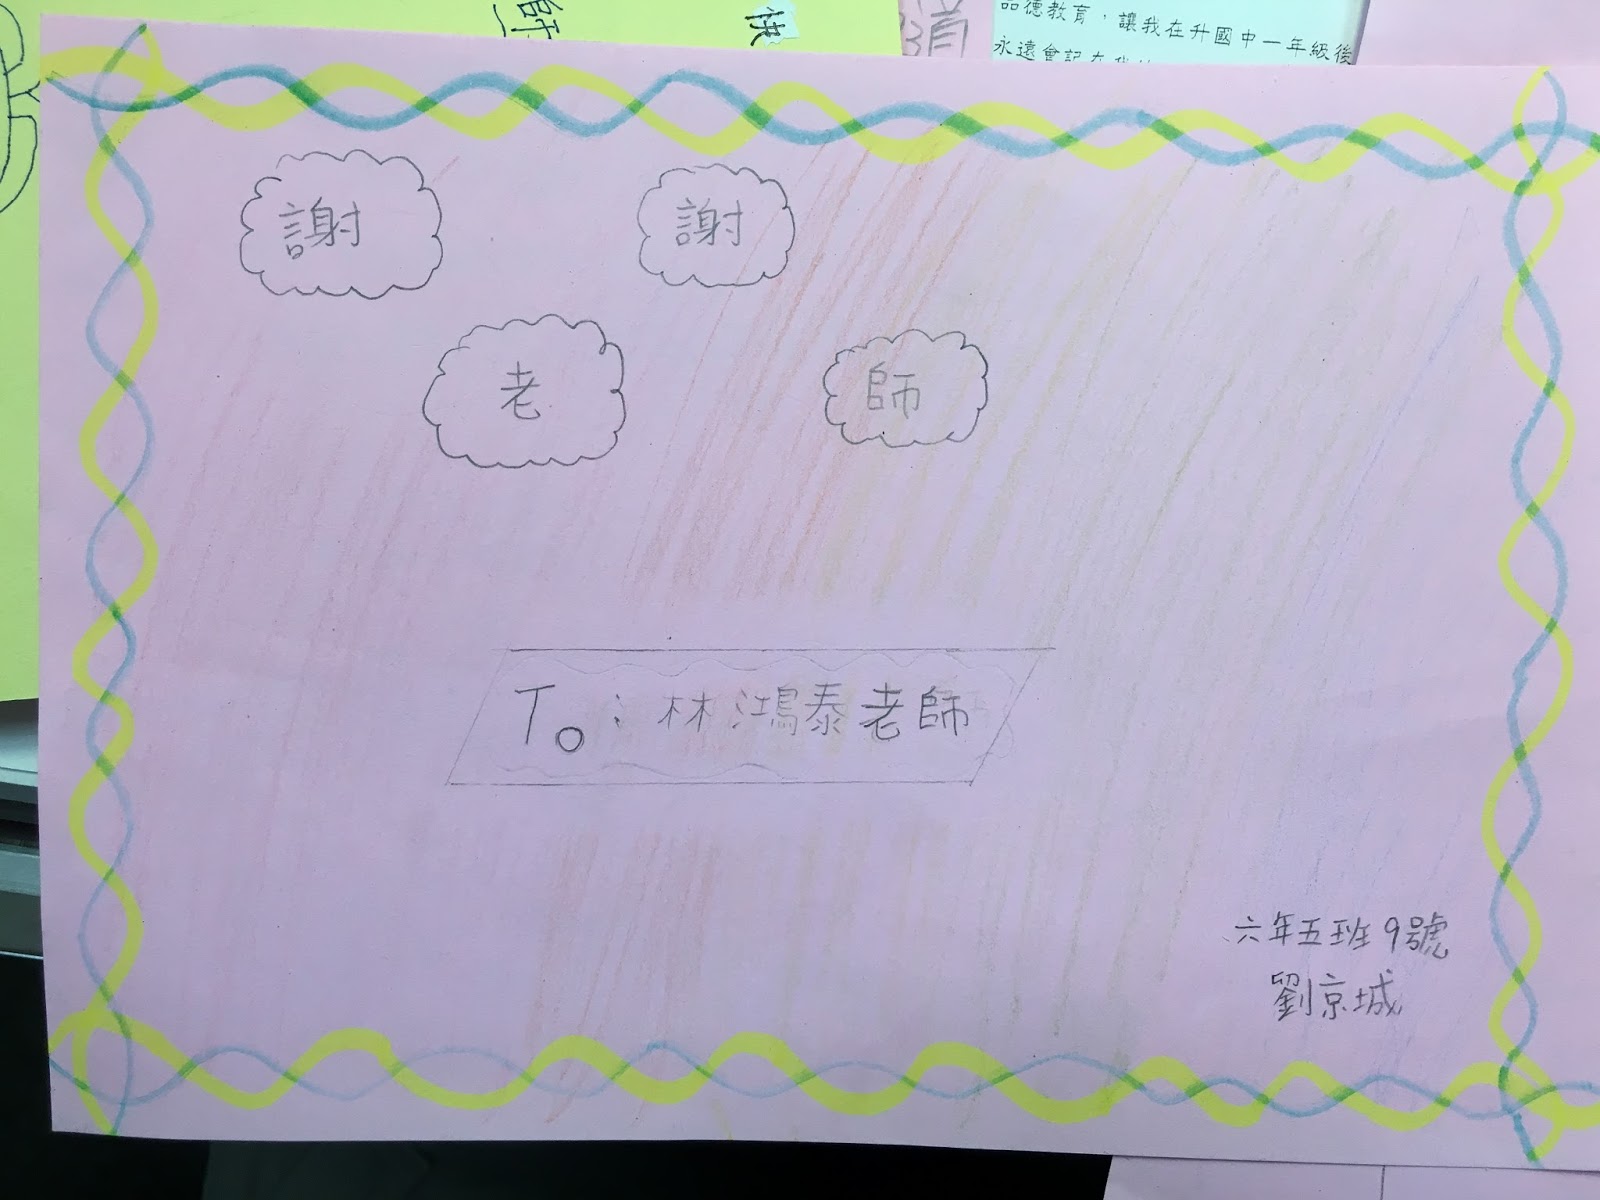 品德教育，讓我在升國中一年級後
永遠會記在我
謝 謝
老 師
To：林鴻泰老師
六年五班9號
劉京城